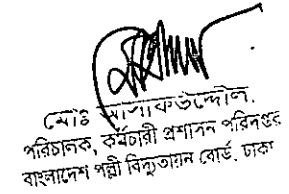 মোঃ
পরিচালক, কর্মচারী প্রশাসন পরিদপ্তর
বাংলাদেশ পল্লী বিদ্যুতায়ন বোর্ড, ঢাকা